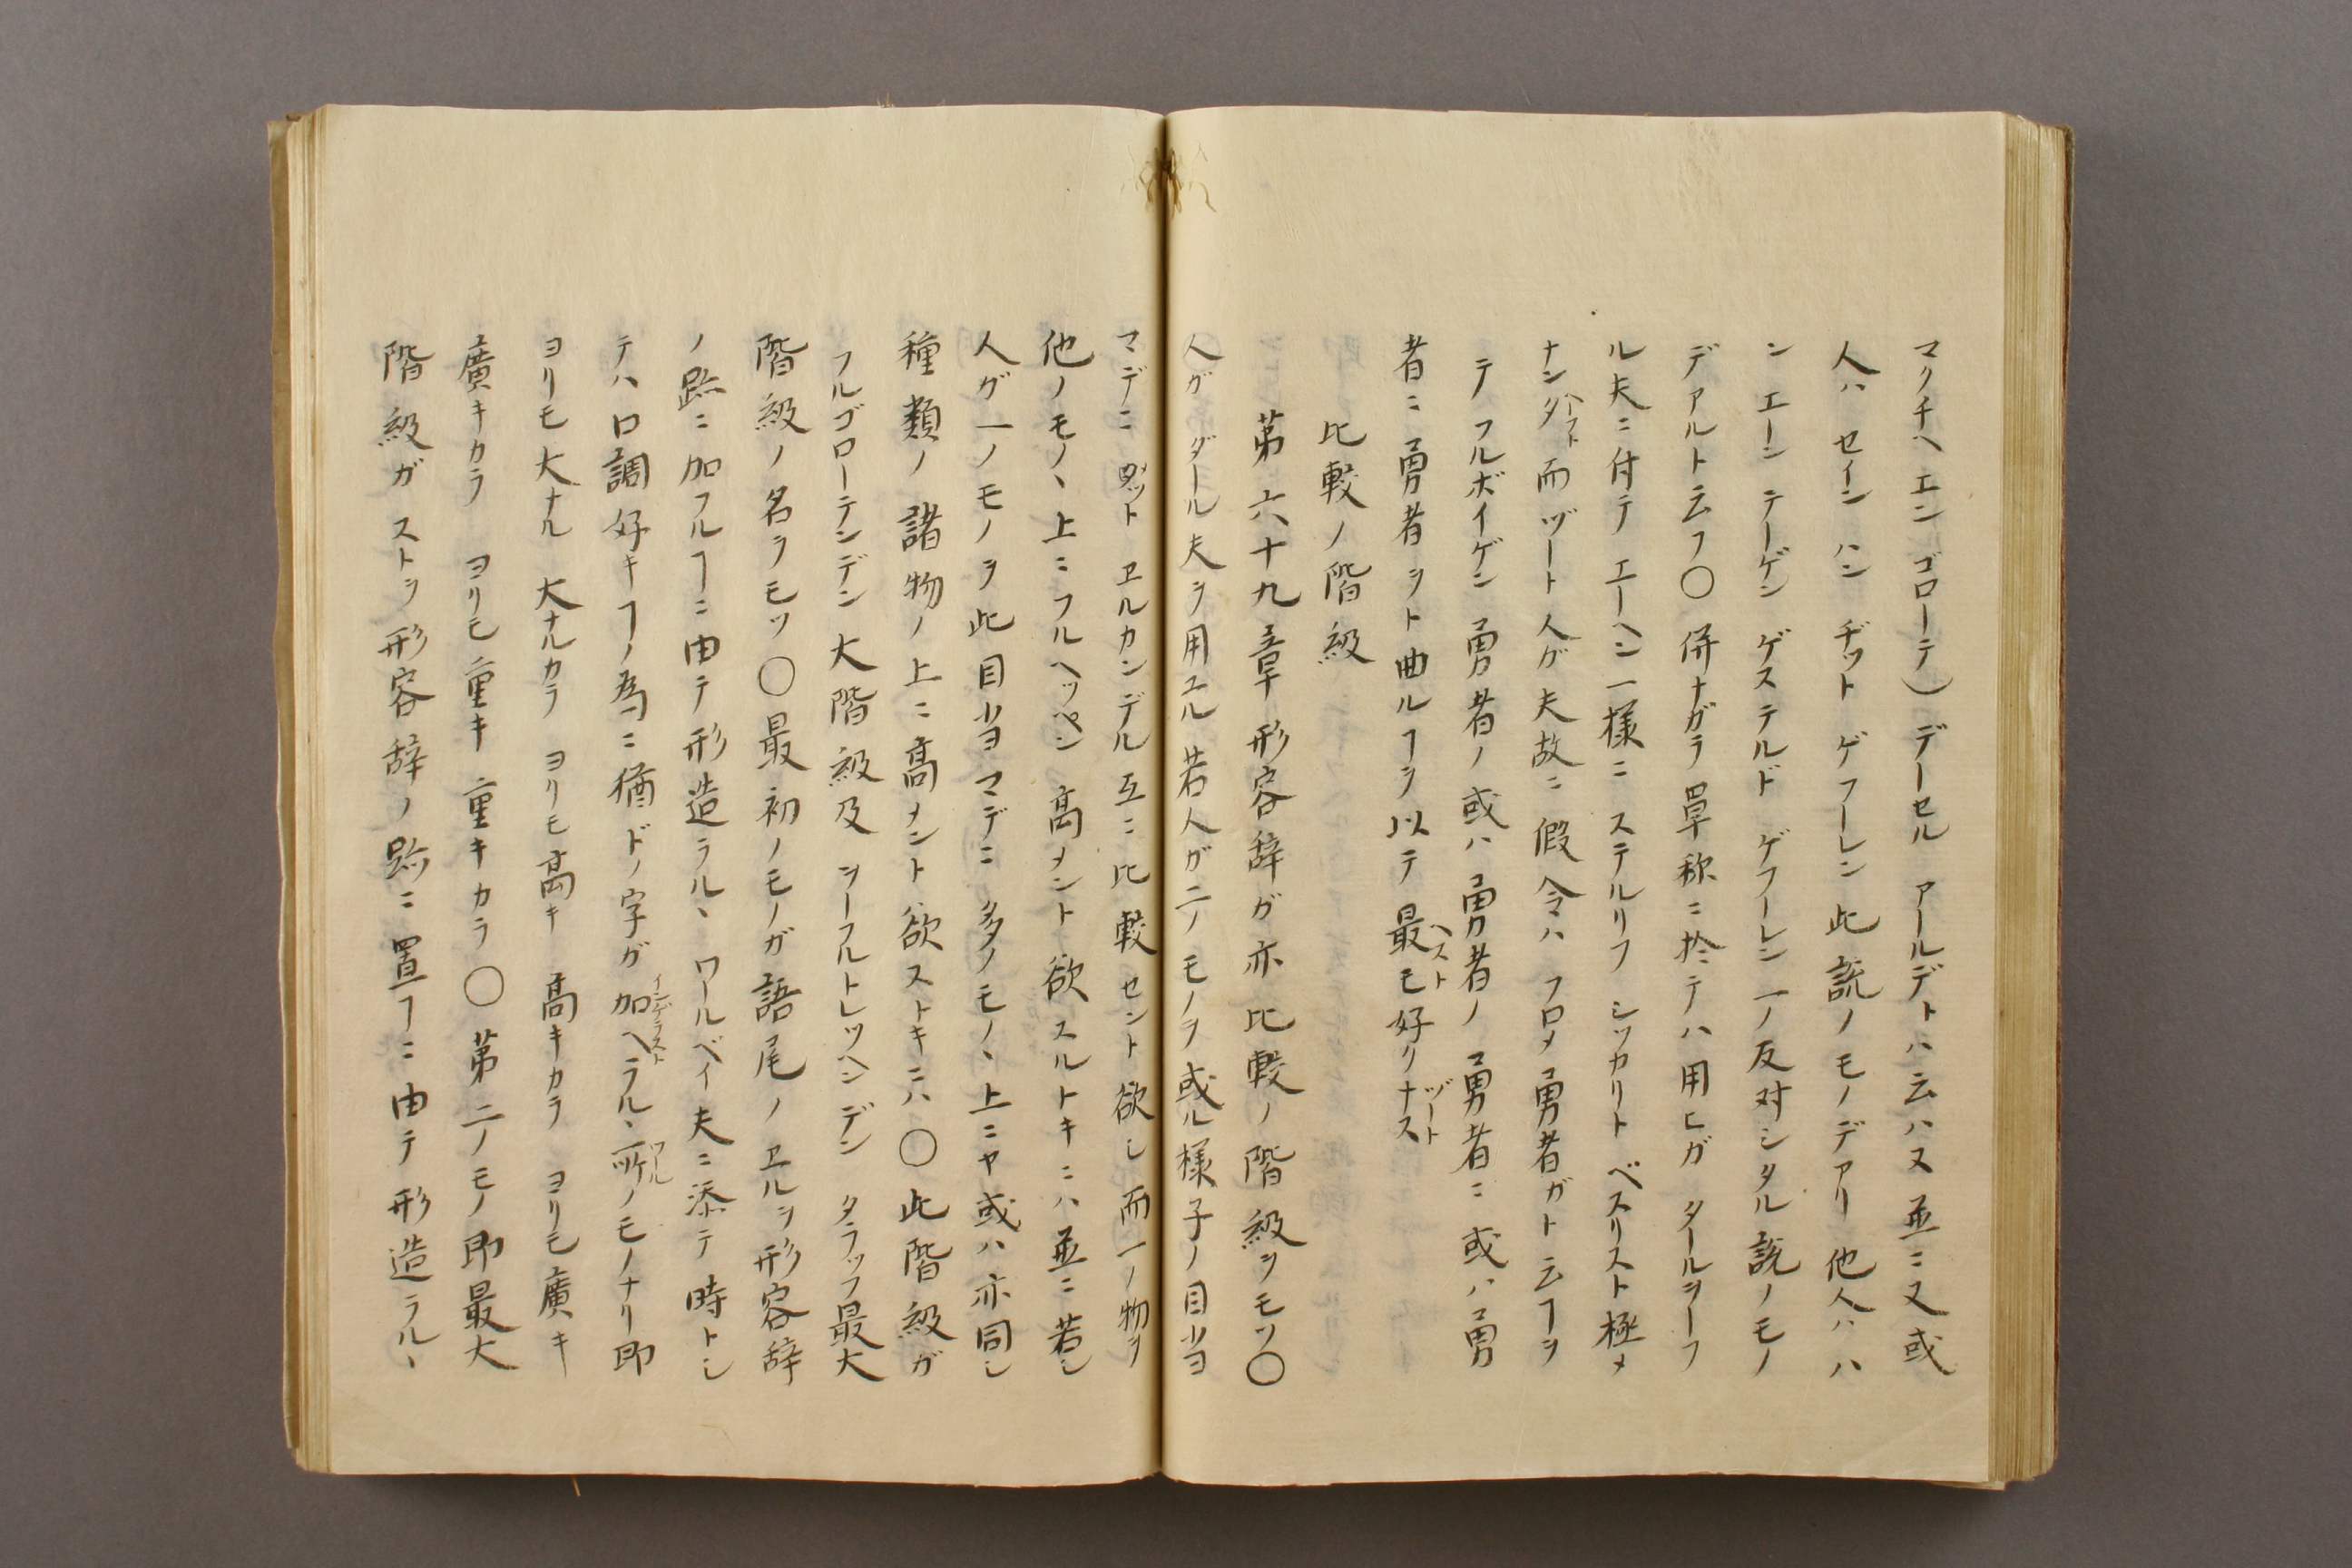 マクチヘエンゴローテ)デーセル アールデトハ云ハス並ニ又或
人ハ セイン ハン ヂット ゲフーレン 此説ノモノデアリ 他人ハ ハ
ン エーン テーゲン ゲステルド ゲフーレン 一ノ反対シタル説ノモノ
デアルト云フ〇併ナガラ單称ニ於テハ用ヒガ タールヲーフ
ル夫ニ付テ エーヘン一様ニ ステルリフ シッカリト ベスリスト極メ
ナンダ而ヅート人ガ夫故ニ假令ハ フロメ勇者ガト云ヿヲ
ヘーフト
テ フルボイゲン 勇者ノ或ハ勇者ノ勇者ニ或ハ勇
者ニ勇者ヲト曲ルヿヲ以テ最モ好クナス
ヘスト
ヅート
比較ノ階級
第六十九章 形容辞ガ亦比較ノ階級ヲモツ〇
人ガ ダール夫ヲ用ユル若人ガ二ノモノヲ或ル様子ノ目当
マデニ メット ヱルカンデル 互ニ比較セント欲し而一ノ物ヲ
他ノモノヽ上ニフルヘッペン 高メント欲スルトキニハ並ニ若し
人ガ一ノモノヲ此目当マデニ多ノモノヽ上ニヤ或ハ亦同し
種類ノ諸物ノ上ニ高メント欲ストキニハ〇此階級ガ
フルゴローテンデン 大階級及 ヲーフルトレッヘンデン タラップ最大
階級ノ名ヲモツ〇最初ノモノガ語尾ノ ヱルヲ形容辞
ノ跡ニ加フルヿニ由テ形造ラルヽ ワールベイ夫ニ添テ時トし
テハ口調好キヿノ為ニ猶ドノ字ガ加ヘラルヽ所ノモノナリ即
インゲラスト
ワール
ヨリモ大ナル 大ナルカラ ヨリモ高キ 高キカラ ヨリモ廣キ
廣キカラ ヨリモ重キ 重キカラ〇第二ノモノ即最大
階級ガ ストヲ形容辞ノ跡ニ置ヿニ由テ形造ラルヽ